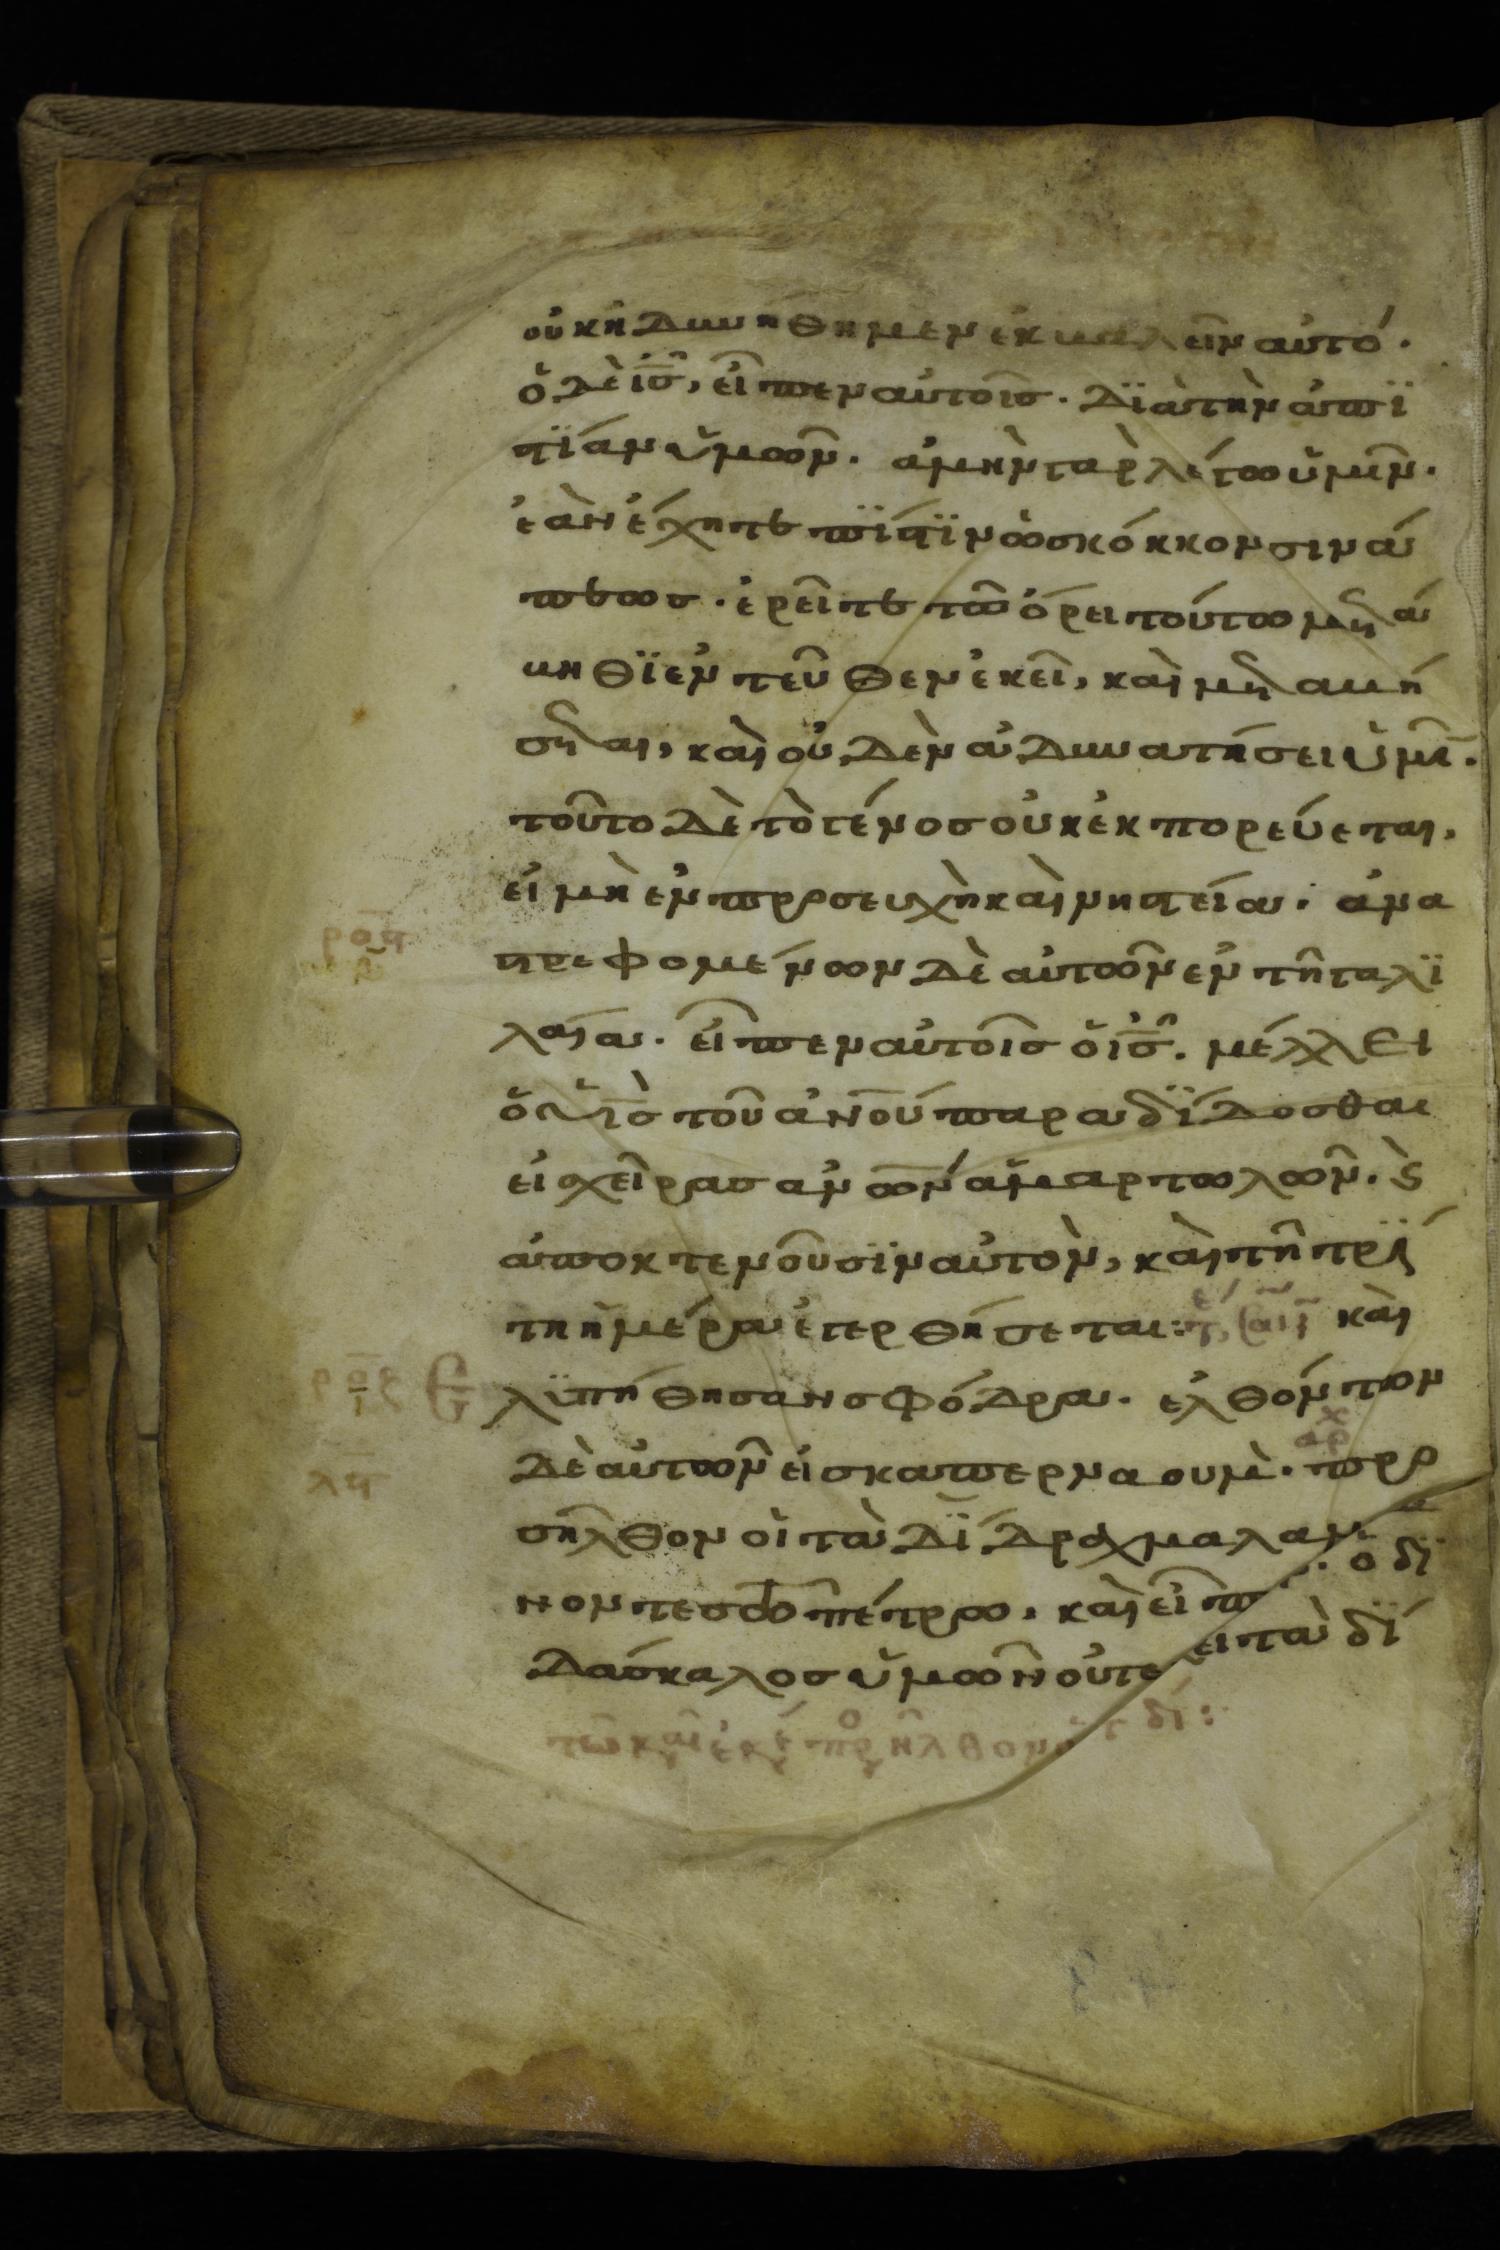 οὐκ ἠδυνήθημεν ἐκβαλεῖν αὐτό.
ὁ δὲ ἰ̅ς̅, εἶπεν αὐτοῖς. δϊὰ τὴν ἀπϊ
στΐαν ὑμῶν. ἀμὴν γὰρ λέγω ὑμῖν.
ἐὰν ἔχητε πΐστϊν ὡς κόκκον σινά
πεως. ἐρεῖτε τῶ ὄρει τούτω μετά
βηθϊ ἐντεῦθεν ἐκεῖ, καὶ μεταβή
σεται, καὶ οὐδὲν ἀδυνατήσει ὑμῖ.
τοῦτο δὲ τὸ γένος οὐκ ἐκπορεύεται,
εἰ μὴ ἐν προσευχὴ καὶ νηστεία. ἀνα
στρεφομένων δὲ αὐτῶν ἐν τῆ γαλϊ
λαία. εἶπεν αὐτοῖς ὁ ἰ̅ς̅. μέλλει
ὁ υἱ̅ς̅ τοῦ ἀ̅ν̅ο̅υ̅ παραδΐδοσθαι
εἰ χεῖρας ἀ̅ν̅ω̅ν̅ ἁμαρτωλῶν. ϗ
ἀποκτενοῦσϊν αὐτὸν, καὶ τῆ τρΐ
τη ἡμέρα ἐγερθήσεται: καὶ
λϋπήθησαν σφόδρα. ἐλθόντων
ρο̅ς̅
δὲ αὐτῶν εἰς καπερναουμ. προ
αρχ
σῆλθον οἱ τὰ δΐδραχμα λαμ
νοντες τῶ πέτρω, καὶ εἶπ ὁ δϊ
δάσκαλος ὑμῶν οὐ τε ει τὰ δΐ